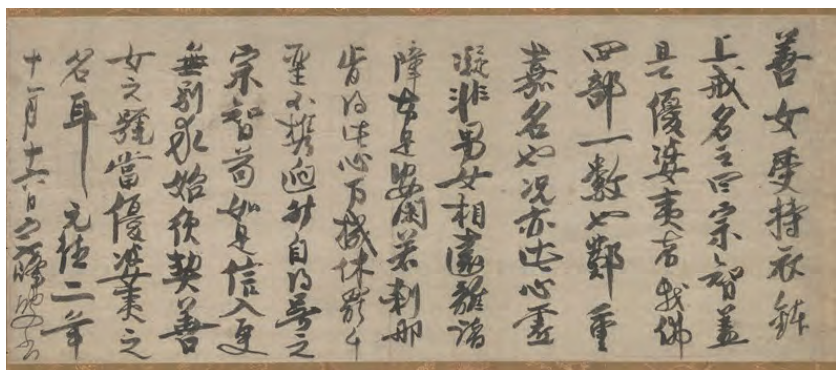 善女受持衣鉢
上戒名之曰宗智蓋
是優婆夷者我佛
四部一數也鄭重
嘉名也况亦此心靈
凝非男女相遠離諸
障方是安閑若刹那
肯得此心万機休罷千
聖不携迥自得号之
宗智苟如是信入更
無別求始便契善
女之號當優婆夷之
名耳 元徳二年
十一月十六日 峰書